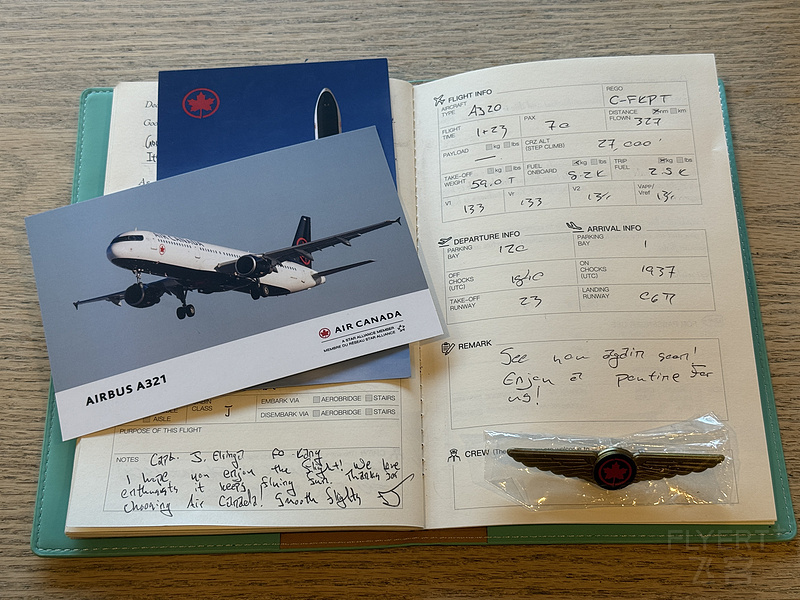 De
Goo
It
AIR CANADA
AIR CANADA
A STAR ALLIANCE MEMBER
MEMBRE DU RÉSEAU STAR ALLIANCE
AIRBUS A321
CLASS J
AISLE
EMBARK VIA AEROBRIDGE STAIRS
DISEMBARK VIA AEROBRIDGE STAIRS
PURPOSE OF THIS FLIGHT
NOTES Capt. J.
I hope you enjoy the flight! We love
enthusiasts it keeps flying fun. Thanks for
choosing Air Canada! Smooth flights
FLIGHT INFO
AIRCRAFT TYPE A320
REGO C-FKPT
FLIGHT TIME 1+23
PAX 70
DISTANCE FLOWN nm km 327
PAYLOAD kg lbs —
CRZ ALT (STEP CLIMB) 27,000'
TAKE-OFF WEIGHT kg lbs 59.0 T
FUEL ONBOARD kg lbs 8.2 K
TRIP FUEL kg lbs 2.5 K
V1 133
Vr 133
V2
VAPP/Vref
DEPARTURE INFO
PARKING BAY
OFF CHOCKS (UTC)
TAKE-OFF RUNWAY 23
ARRIVAL INFO
PARKING BAY 1
ON CHOCKS (UTC) 1937
LANDING RUNWAY
REMARK
See you again soon!
Enjoy a poutine for
us!
CREW (The
FLYERT